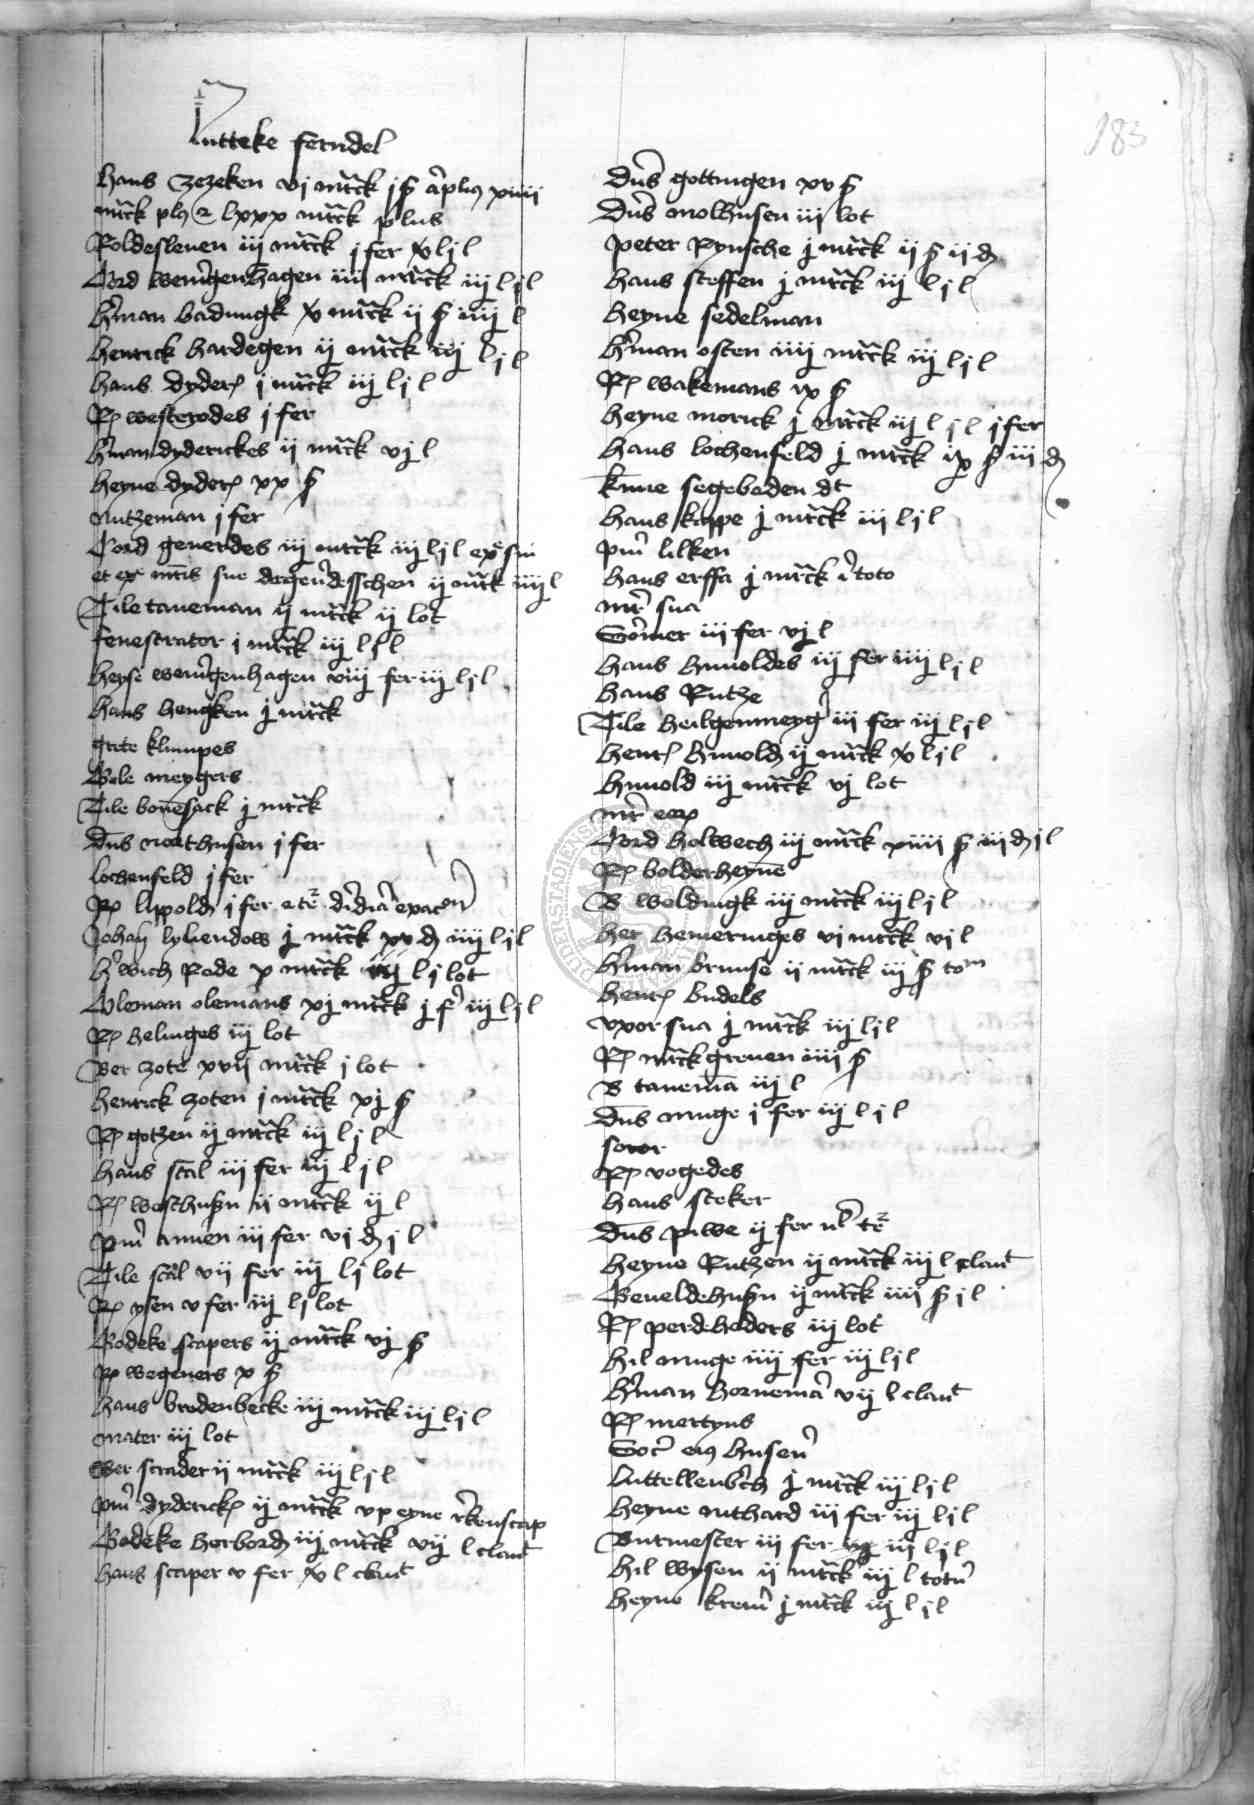 183
Lutteke ferndel
hans Zezeken vj mrck j ß
mrck lxxx mrck plus
Roldesleuen iij mrck j fer l j l
Cord weni'genhagen iiij mrck iij l j l
h'man badungk mrck ij ß iiij l
henrick hardegen ij mrck iij l j l
hans dyder j mrck iij l j l
R westerodes j fer
h'man dyderickes ij mrck vj l
heyne dyder xx ß
nutzeman j fer
Cord geuerdes iij mrck iij l j l
et ij mrck iiij l
Tile taneman ij mrck ij lot
fenestrator j mrck iij l j l
heyse weni'genhagen viij fer iij l j l
hans hengken j mrck
grete klumpes
Bele meygers
Tile bonesack j mrck
dns northusen j fer
lochenfeld j fer
R luppold j fer
Johan lyliendow j mrck xv d iiij l j l
h'wich Rode x mrck l j lot
Oleman olemans xj mrck j f' iij l j l
R helinges iij lot
Ber zote xvij mrck j lot
henrick zoten j mrck xj ß
R gotzen ij mrck iij l j l
hans stal iij fer iij l j l
R westhusn ij mrck ij l
pm' annen iij fer vj d j l
Tile stal vij fer iij l j lot
R ysen v fer iij l j lot
Bodeke scapers ij mrck vj ß
R wegeners x ß
hans bredenbecke iij mrck iij l j l
mater iij lot
Wer scrader ij mrck iij l j l
pm' dyderick ij mrck vp eyne r'kenscap
Bodeke herbord iij mrck vij l clau't
hans scaper v fer l clau't
dns gottingen xv ß
dns molhusen iij lot
peter Rynsche j mrck ij ß ij d
hans steffen j mrck iij l j l
heyne sedelman
h'man osten iiij mrck iij l j l
R wakemans ix ß
heyne morick j mrck iij l j l j fer
hans lochenfeld j mrck ix ß iij d
kune segeboden dt
hans koppe j mrck iij l j l
pm' lilken
hans erffa j mrck i' toto
mr' sua
Gomer iij fer vj l
hans hunoldes iij fer iiij l j l
hans Rutze
Tile heilgenmeyg' iij fer iij l j l
henr hunold ij mrck l j l
hunold iij mrck vj lot
mr' eor
Cord holwech iij mrck xiiij ß iij d j l
R bolderheyne
B weldingk iij mrck iij l j l
her hemeringes vj mrck vj l
h'man brunse ij mrck iij ß tom
henr budels
vxor sua j mrck iij l j l
R mrckgreuen iiij ß
B tanema iij l
dns muge j fer iij l j l
soror
R vogedes
hans steker
dns piwe ij fer
heyne Rutzen ij mrck iij l clau't
Geueldehusn ij mrck iiij ß j l
R perdeholders iij lot
hil muge iiij fer iij l j l
h'man hornema' vij l clau't
R mertyns
Soc' eius husen'
luttellenb'ch j mrck iij l j l
heyne muthard iij fer iij l j l
Burmester iij fer iij l j l
hil wysen ij mrck iij l totu'
heyne krem' j mrck iij l j l